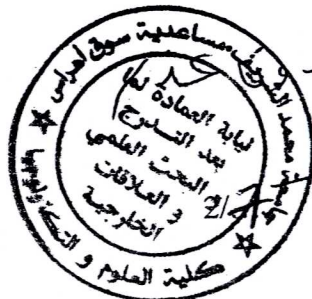 جامعة محمد الشريف مساعدية سوق أهراس
نيابة العمادة لما
بعد التدرج
و البحث العلمي
و العلاقات
الخارجية
كلية العلوم و التكنولوجيا